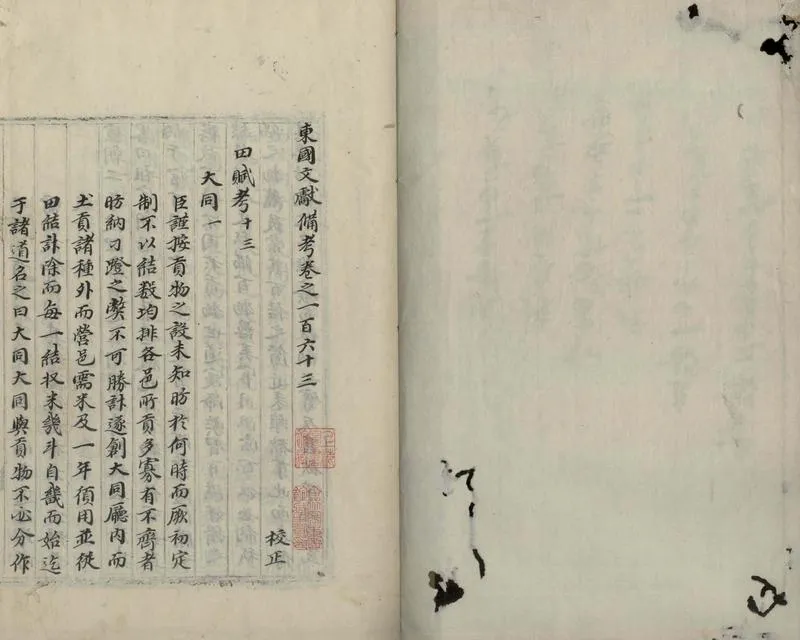 東國文獻備考卷之一百六十三
校正
田賦考十三
大同一
臣謹按貢物之設未知昉於何時而厥初定
制不以結數均排各邑所貢多寡有不齊者
昉納刁蹬之弊不可勝計遂創大同廳內而
土貢諸種外而營邑需米及一年俱用並從
田結計除而每一結收米幾斗自畿而始迄
于諸道名之曰大同大同與貢物不必分作